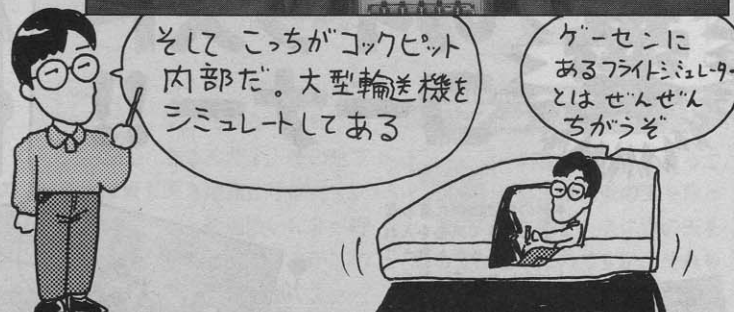 そして こっちがコックピット
内部だ。大型輸送機を
シミュレートしてある
ゲーセンに
あるフライトシミュレーター
とは ぜんぜん
ちがうぞ